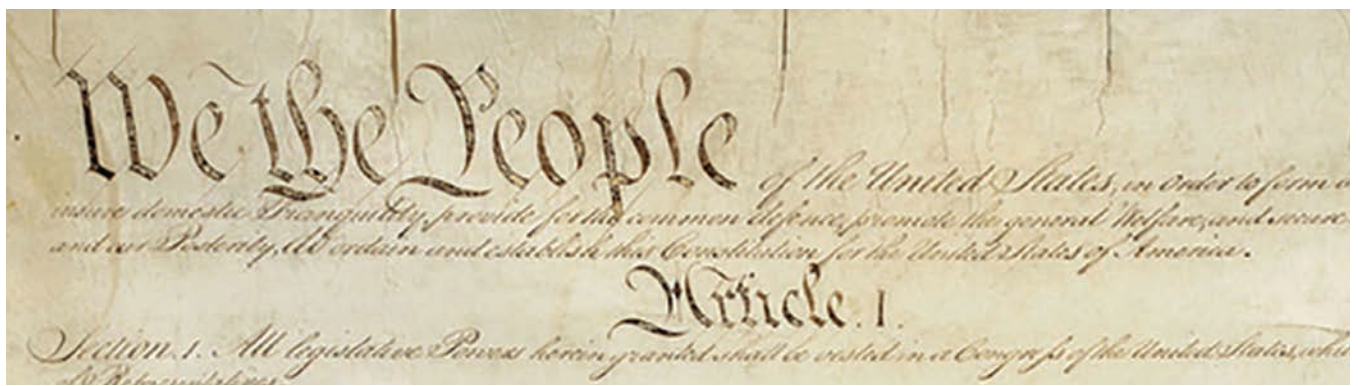 We the People of the United States, in Order to form a
insure domestic Tranquility, provide for the common defence, promote the general Welfare, and secure
and our Posterity, do ordain and establish this Constitution for the United States of America.
Article. I.
Section. 1. All legislative Powers herein granted shall be vested in a Congress of the United States, whi
of Representatives.